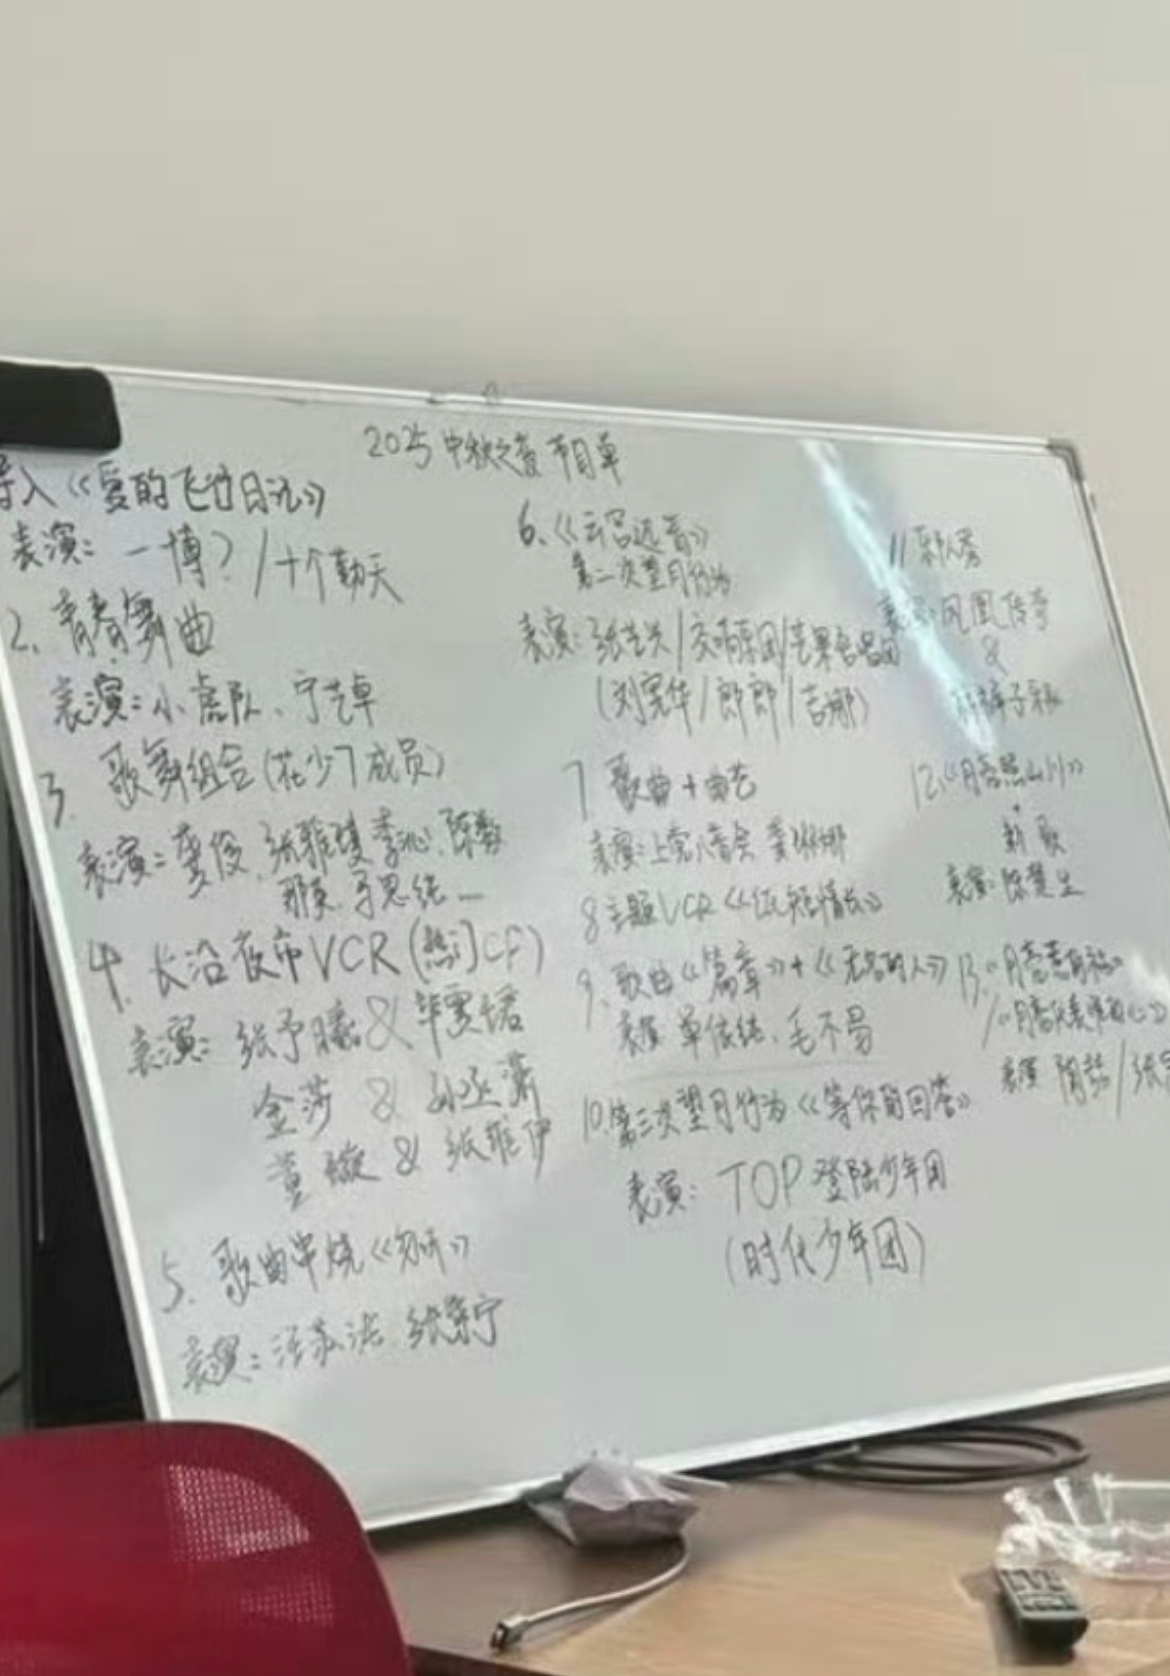 2025 中秋之夜 节目单
导入《爱的飞行日记》
表演：一博？/十个勤天
2、青春舞曲
表演：小虎队、宁艺卓
3、歌舞组合(花少7成员)
表演：龚俊、张雅琪 李沁、陈数
那英、马思纯
4、长沿夜市VCR(热门CP)
表演：张予曦&毕雯珺
金莎 & 孙丞潇
董璇 & 张维伊
5、歌曲串烧
表演：汪苏泷 张紫宁
6、《云宫迅音》
第二次望月行为
表演：张艺兴/交响乐团/苹果合唱团
(刘宪华/郎郎/吉娜)
7 歌曲+曲艺
表演：上党八音会 龚琳娜
8 主题VCR《纸短情长》
9、歌曲《篇章》+《无名的人》
表演 单依纯、毛不易
10.第三次望月行为《等你的回答》
表演：TOP 登陆少年团
(时代少年团)
11
表演：凤凰传奇
&
12.《月亮照山川》
+
新歌
表演：陈楚生
13.
/《月亮代表我的心》
表演